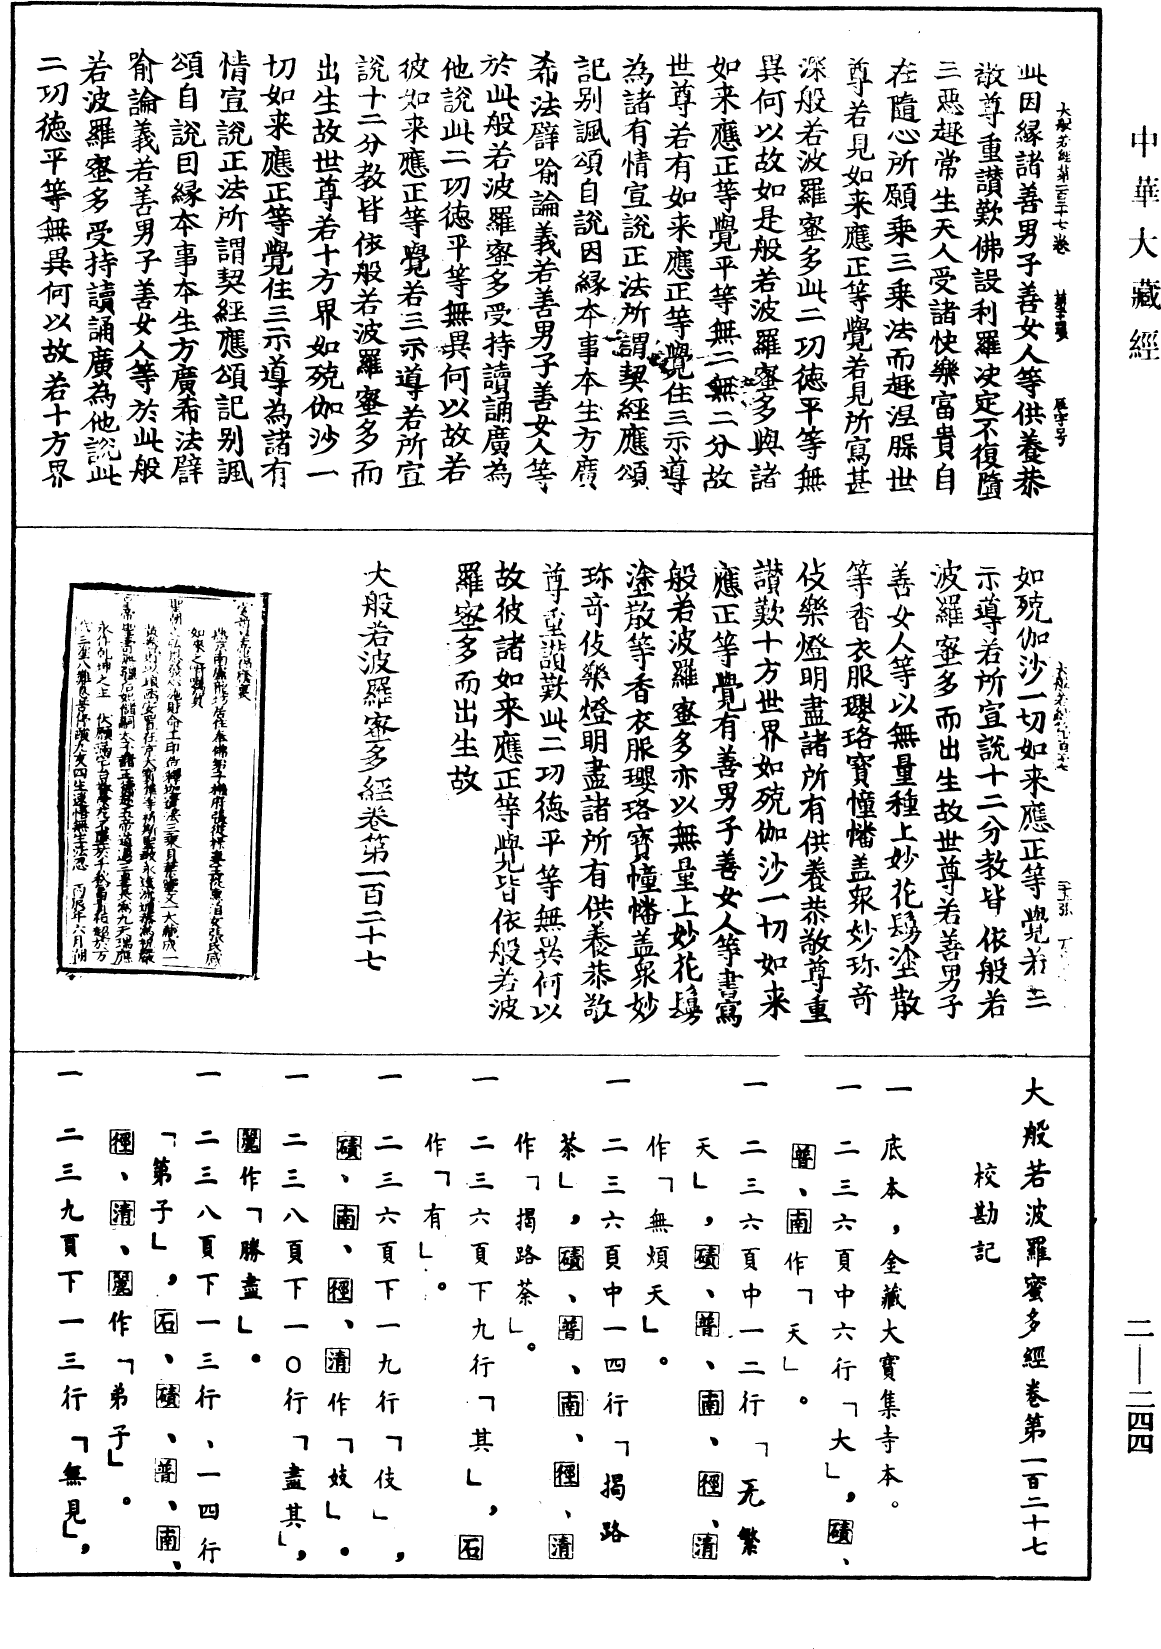 中華大藏經
二—二四四
大般若經第一百二十七卷
此因緣諸善男子善女人等供養恭
敬尊重讚歎佛設利羅決定不復墮
三惡趣常生天人受諸快樂富貴自
在隨心所願乘三乘法而趣涅槃世
尊若見如來應正等覺若見所寫甚
深般若波羅蜜多此二功德平等無
異何以故如是般若波羅蜜多與諸
如來應正等覺平等無二無二分故
世尊若有如來應正等覺住三示導
為諸有情宣說正法所謂契經應頌
記別諷頌自說因緣本事本生方廣
希法譬喻論義若善男子善女人等
於此般若波羅蜜多受持讀誦廣為
他說此二功德平等無異何以故若
彼如來應正等覺若三示導若所宣
說十二分教皆依般若波羅蜜多而
出生故世尊若十方界如殑伽沙一
切如來應正等覺住三示導為諸有
情宣說正法所謂契經應頌記別諷
頌自說因緣本事本生方廣希法譬
喻論義若善男子善女人等於此般
若波羅蜜多受持讀誦廣為他說此
二功德平等無異何以故若十方界
如殑伽沙一切如來應正等覺若三
示導若所宣說十二分教皆依般若
波羅蜜多而出生故世尊若善男子
善女人等以無量種上妙花鬘塗散
等香衣服瓔珞寶幢幡蓋眾妙珍奇
伎樂燈明盡諸所有供養恭敬尊重
讚歎十方世界如殑伽沙一切如來
應正等覺有善男子善女人等書寫
般若波羅蜜多亦以無量上妙花鬘
塗散等香衣服瓔珞寶幢幡蓋眾妙
珍奇伎樂燈明盡諸所有供養恭敬
尊重讚歎此二功德平等無異何以
故彼諸如來應正等覺皆依般若波
羅蜜多而出生故
大般若波羅蜜多經卷第一百二十七
大般若波羅蜜多經卷第一百二十七
校勘記
一 底本，金藏大寶集寺本。
一 二三六頁中六行「大」，磧、
普、南作「天」。
一 二三六頁中一二行「无繁
天」，磧、普、南、徑、清
作「無煩天」。
一 二三六頁中一四行「揭路
茶」，磧、普、南、徑、清
作「揭路荼」。
一 二三六頁下九行「其」，石
作「有」。
一 二三六頁下一九行「伎」，
磧、南、徑、清作「妓」。
一 二三八頁下一〇行「盡其」，
麗作「勝盡」。
一 二三八頁下一三行、一四行
「第子」，石、磧、普、南、
徑、清、麗作「弟子」。
一 二三九頁下一三行「無見」，